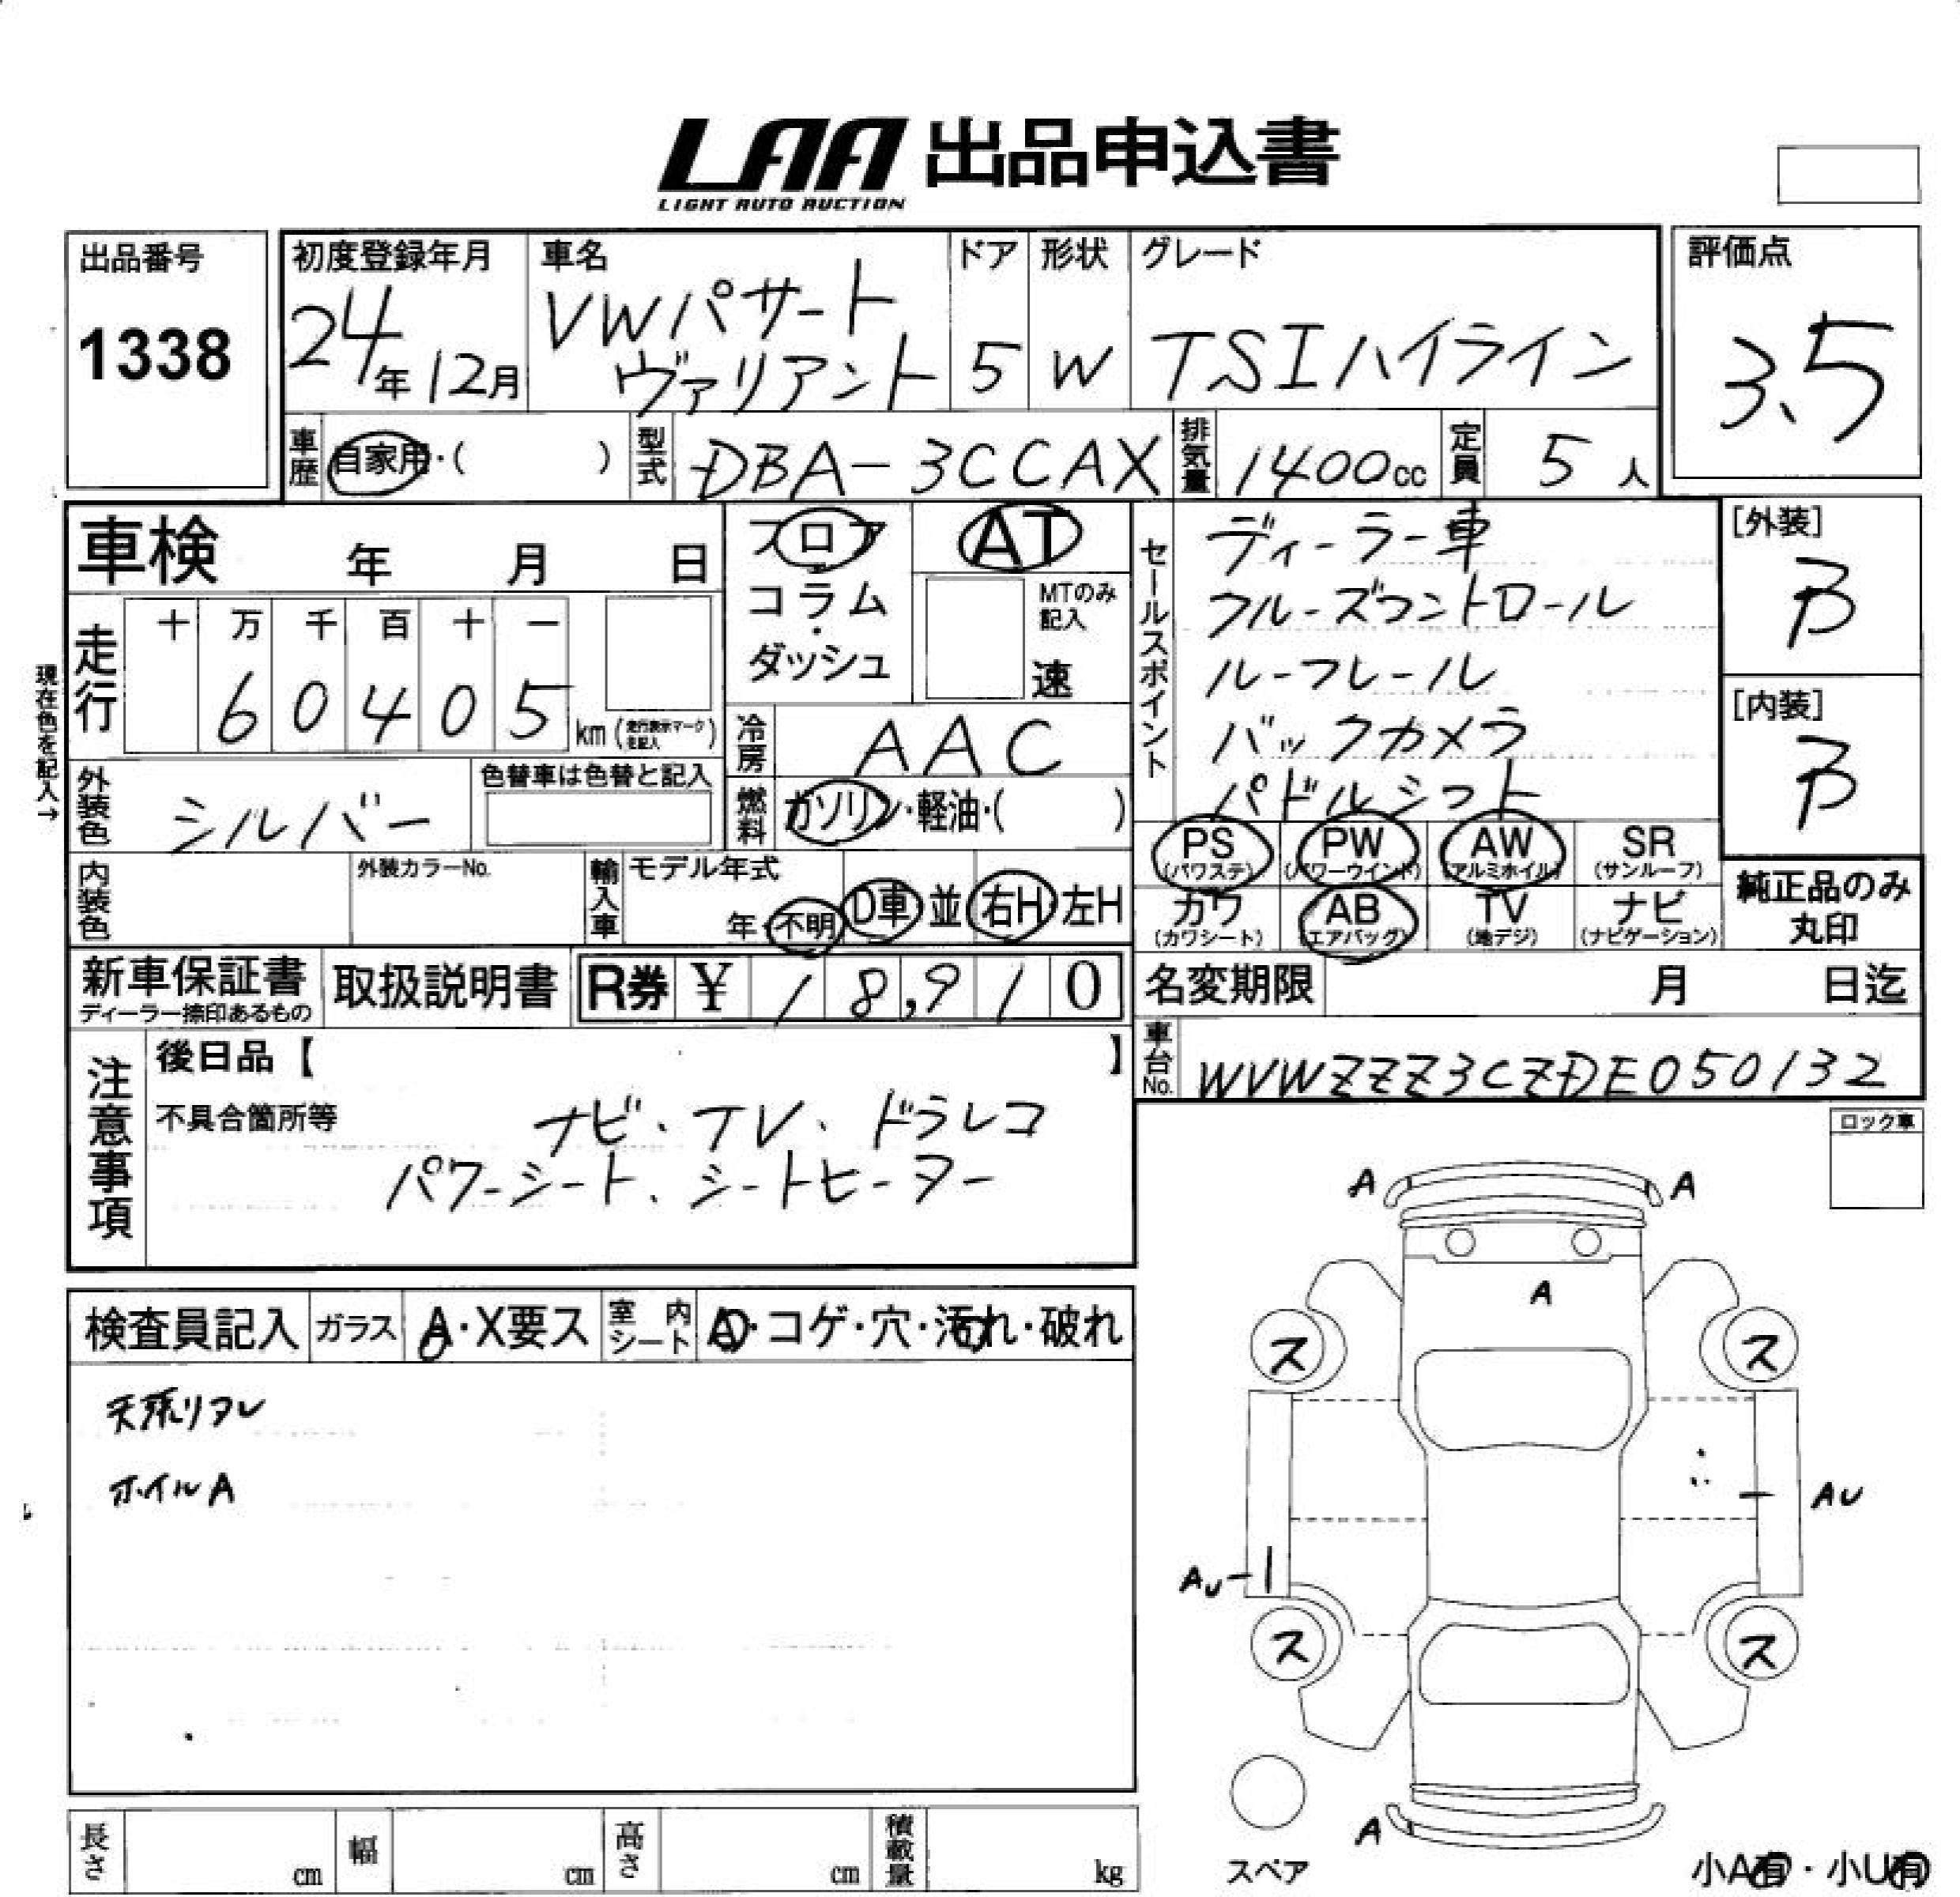 LAA 出品申込書
LIGHT AUTO AUCTION
出品番号
1338
初度登録年月
24年12月
車名
VWパサート
ヴァリアント
ドア
5
形状
W
グレード
TSIハイライン
評価点
3.5
車歴 自家用・( )
型式 DBA-3CCAX
排気量 1400cc
定員 5人
車検 年 月 日
現在色を記入→
走行
十 万 千 百 十 一
6 0 4 0 5
km (走行表示マーク
を記入)
フロア
・
コラム
・
ダッシュ
AT
MTのみ
記入
速
冷房 AAC
燃料 ガソリン・軽油・( )
外装色 シルバー
色替車は色替と記入
内装色
外装カラーNo.
輸入車
モデル年式
年・不明
D車・並
右H・左H
セールスポイント
ディーラー車
クルーズコントロール
ルーフレール
バックカメラ
パドルシフト
[外装]
B
[内装]
B
PS
(パワステ)
PW
(パワーウインド)
AW
(アルミホイル)
SR
(サンルーフ)
カワ
(カワシート)
AB
(エアバッグ)
TV
(地デジ)
ナビ
(ナビゲーション)
純正品のみ
丸印
新車保証書
ディーラー捺印あるもの
取扱説明書
R券 ¥ 18,910
名変期限 月 日迄
車台No. WVWZZZ3CZDE050132
注意事項
後日品【 】
不具合箇所等
ナビ、TV、ドラレコ
パワーシート、シートヒーター
ロック車
検査員記入
ガラス A・X要ス
室内シート A・コゲ・穴・汚れ・破れ
天張リタレ
ホイルA
A A
A
ス ス
AU
AU
ス ス
A
スペア
小A有・小U有
長さ cm
幅 cm
高さ cm
積載量 kg